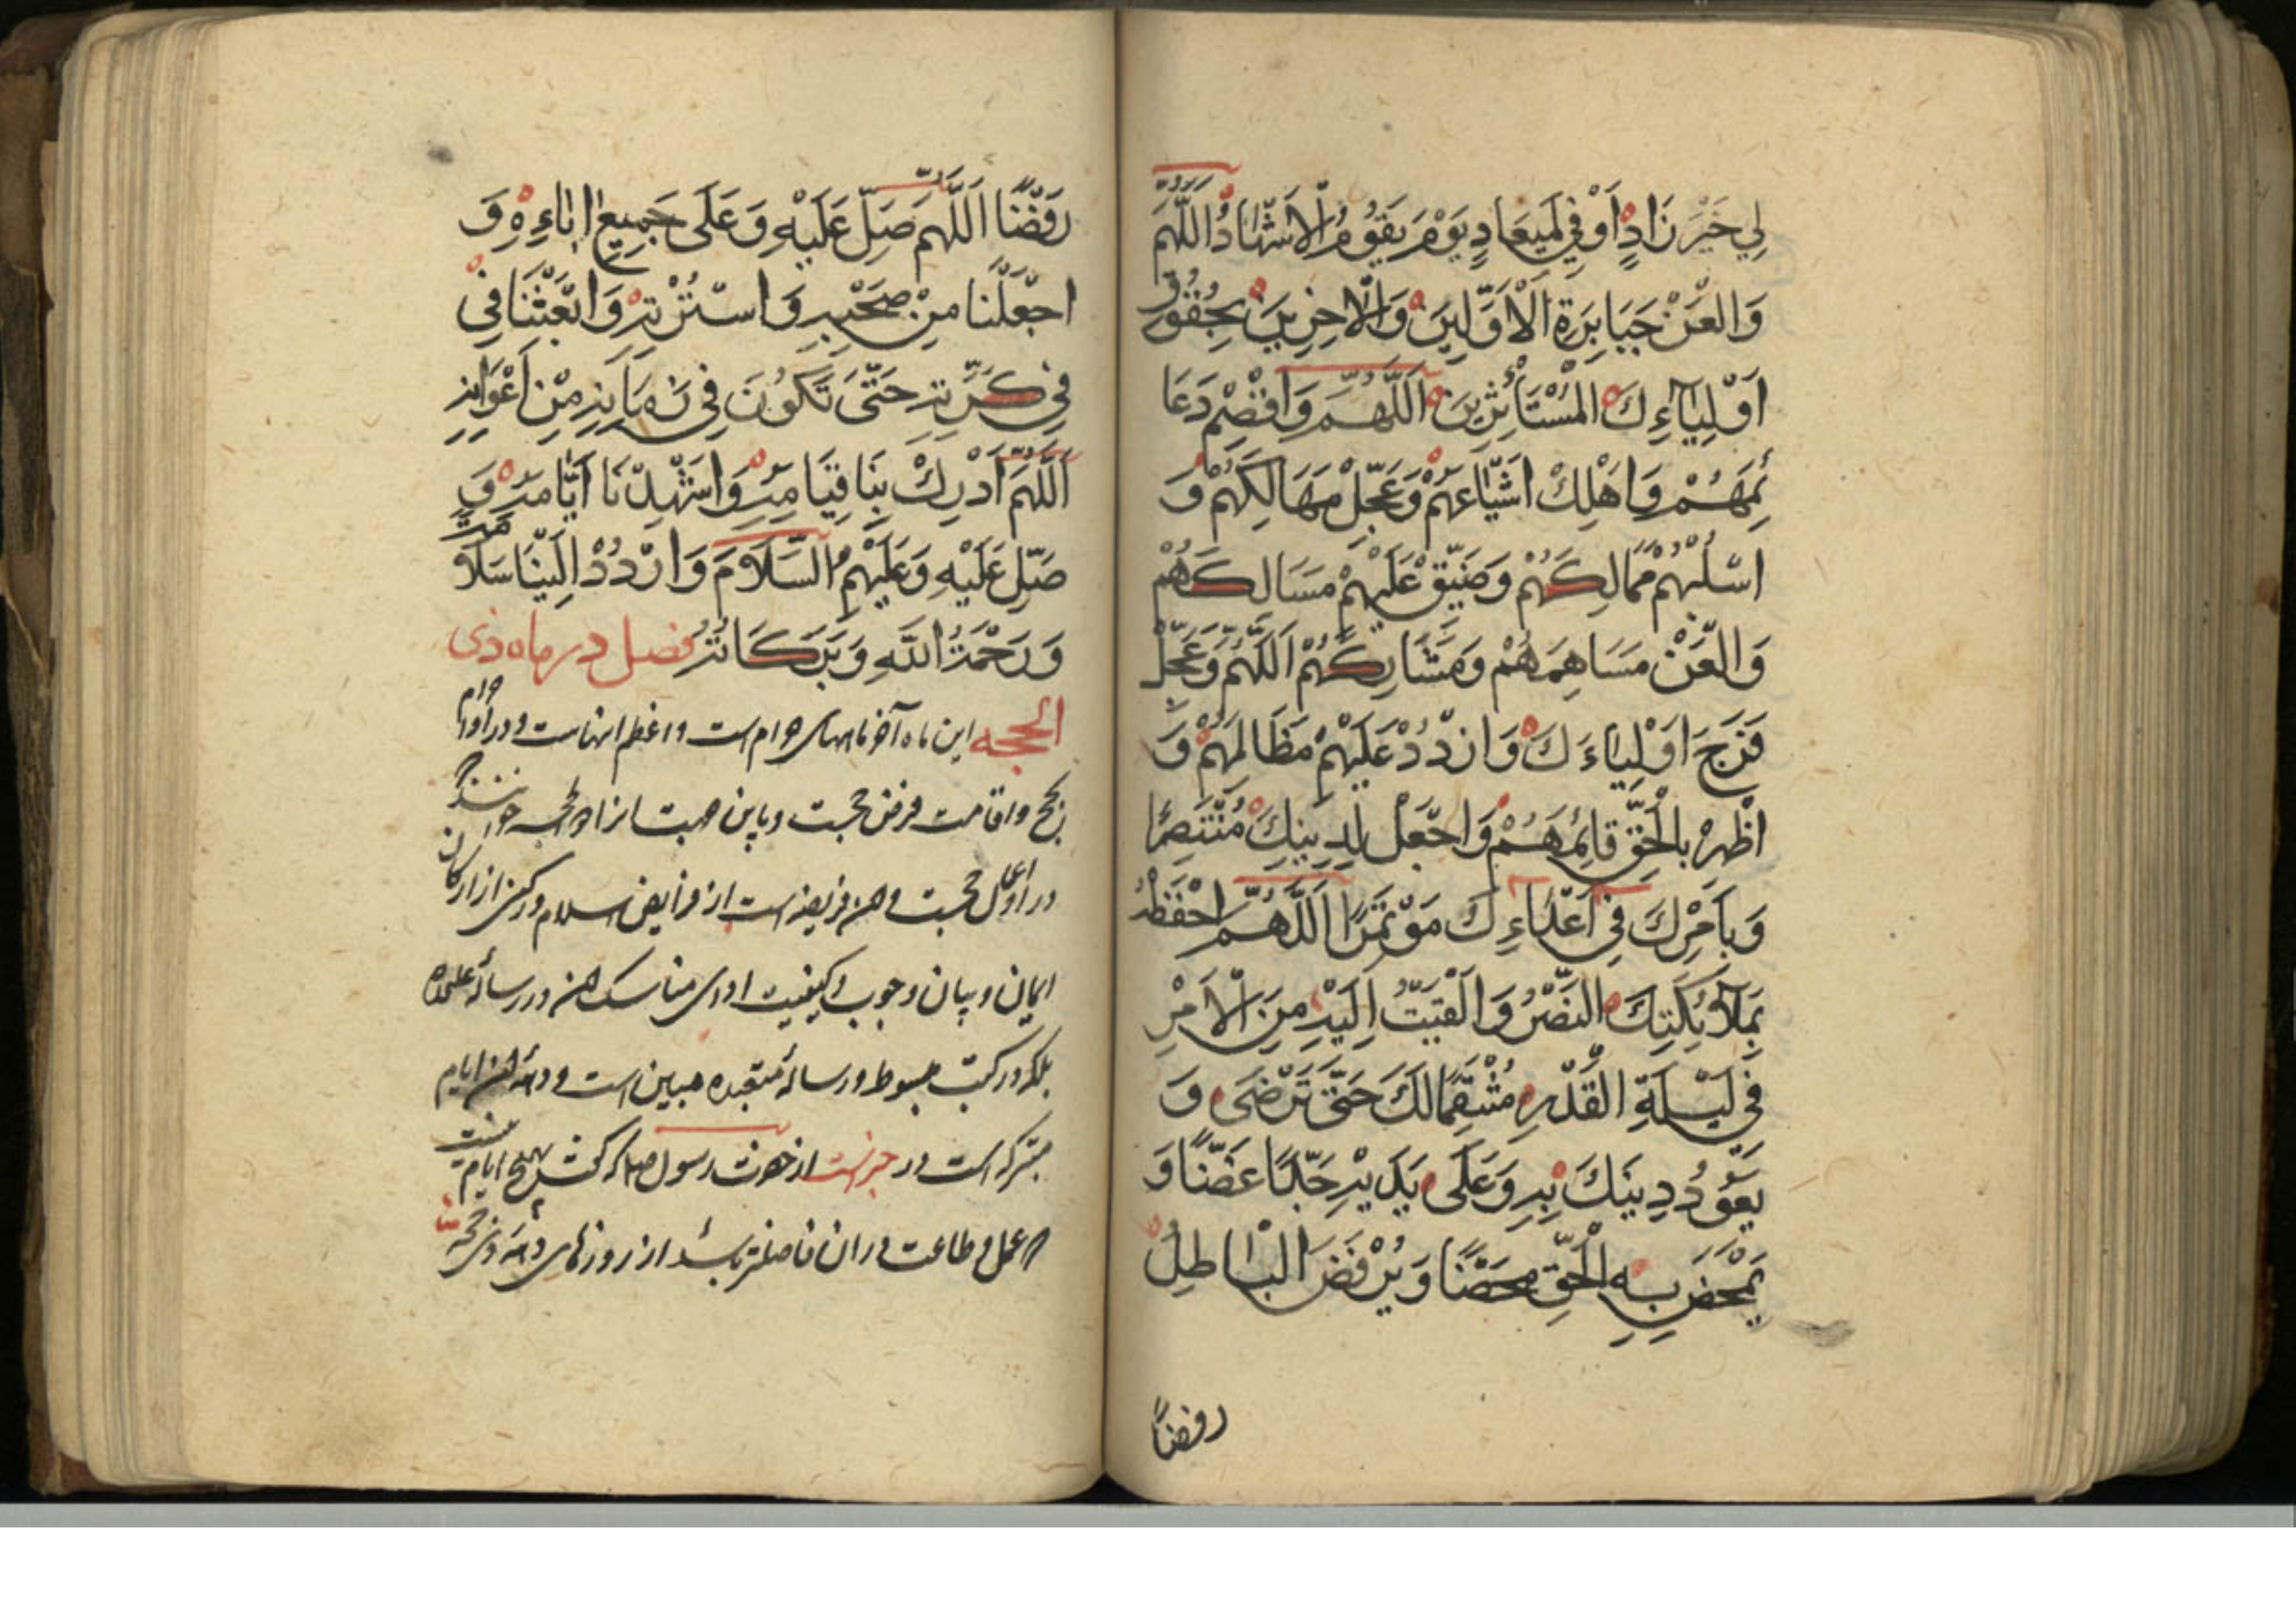 لِي خَيْرَ زَادٍ أَوْفِي لَمِيعَادٍ يَوْمَ يَقُومُ الْأَشْهَادُ اللَّهُمَّ
وَالْعَنْ جَبَابِرَةَ الْأَوَّلِينَ وَالْآخِرِينَ بِحُقُوقِ
أَوْلِيَاءِكَ الْمُسْتَأْثِرِينَ اللَّهُمَّ وَاقْصِمْ دَعَا
ئِمَهُمْ وَاَهْلِكْ اَشْيَاعَهُمْ وَعَجِّلْ مَهَالِكَهُمْ وَ
اسْلُبْهُمْ مَمَالِكَهُمْ وَضَيِّقْ عَلَيْهِمْ مَسَالِكَهُمْ
وَالْعَنْ مَسَاهِمَهُمْ وَمَشَارِكَهُمْ اَللَّهُمَّ وَعَجِّلْ
فَرَجَ اَوْلِيَاءَكَ وَارْدُدْ عَلَيْهِمْ مَظَالِمَهُمْ وَ
اَظْهِرْ بِالْحَقِّ قَائِمَهُمْ وَاجْعَلْ لِدِينِكَ مُنْتَصِرًا
وَبِاَمْرِكَ فِي اَعْدَاءِكَ مَوْتَمَرًا اَللَّهُمَّ احْفَظْهُ
بِمَلَآئِكَتِكَ النَّصْرُ وَاَلْقَيْتَ اِلَيْهِ مِنَ الْاَمْرِ
فِي لَيْلَةِ الْقَدْرِ مُنْتَقِمًا لَكَ حَتَّى تَرْضَى وَ
يَعُودُ دِينَكَ بِهِ وَعَلَى يَدَيْهِ جَدِيدًا غَضًّا وَ
يَمْحَضَ بِهِ الْحَقِّ مَحْضًا وَيُرْفَضَ الْبَاطِلُ
رفضاً
رَفْضًا اَللَّهُمَّ صَلِّ عَلَيْهِ وَعَلَى جَمِيعِ ابَاءِهِ وَ
اجْعَلْنَا مِنْ صَحْبِهِ وَاسْتُرْتِهِ وَابْعَثْنَا فِي
فِي كَرَّتِهِ حَتَّى تَكُونَ فِي زَمَانِهِ مِنْ اَعْوَانِهِ
اَللَّهُمَّ اَدْرِكْ بِنَا قِيَامَهُ وَاشْهِدْنَا اَيَّامَهُ وَ
صَلِّ عَلَيْهِ وَعَلَيْهِمُ السَّلَامَ وَارْدُدْ اِلَيْنَا سَلَامَهُ
وَرَحْمَةُ اللهِ وَبَرَكَاتُهُ فصل در ماه ذی
الحجه این ماه آخر ماههای حرام است و اعظم انهاست و در او احرام
بحج و اقامت فرض حجست و باین جهت انرا ذوالحجه خوانند
در اوّل حجست و حج فریضه است از فرایض اسلام و رکنی از ارکان
ایمان و بیان وجوب و کیفیت ادای مناسک حج در رسالهٔ علیحده
بلکه در کتب مبسوط و رسالهٔ متعبده مبین است و دههٔ این ایام
متبرکه است در خبرست از حضرت رسول ص که گفت هیچ ایام نیست
که عمل و طاعت در ان فاضلتر باشد از روزهای دههٔ ذی حجه